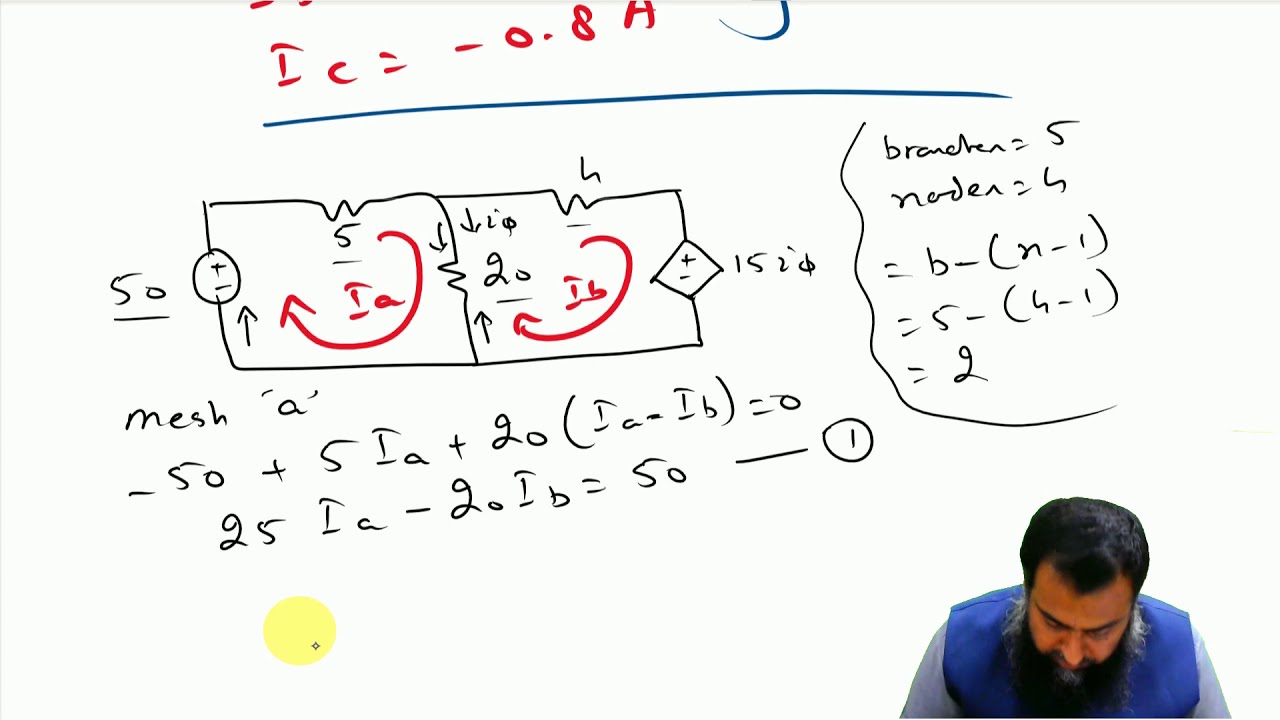 Ic = -0.8 A
branches = 5
nodes = 4
= b-(n-1)
= 5-(4-1)
= 2
4
↓iφ
5
20
50
Ia
Ib
15iφ
mesh 'a'
-50 + 5Ia + 20(Ia-Ib)=0
25 Ia - 20Ib = 50 — ①